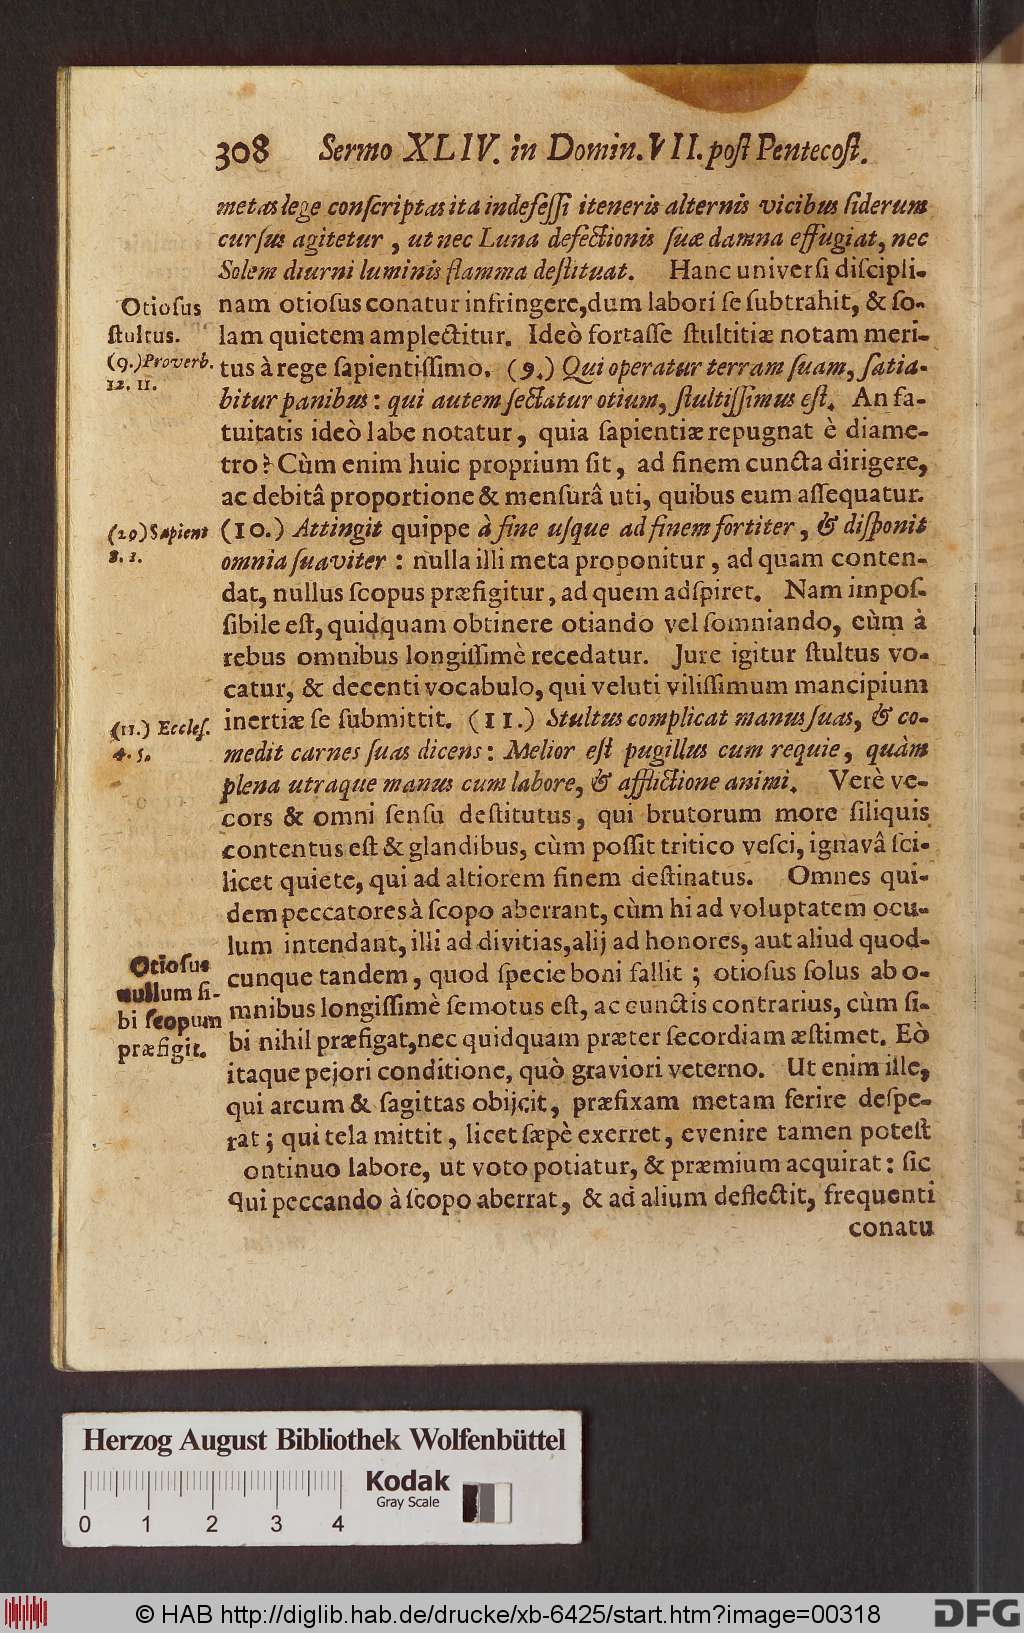 308 Sermo XLIV. in Domin. VII. poſt Pentecoſt.
metas lege conſcriptas ita indefeſſi iteneris alternis vicibus ſiderum
curſus agitetur, ut nec Luna defectionis ſuæ damna effugiat, nec
Solem diurni luminis flamma deſtituat. Hanc univerſi diſcipli-
nam otioſus conatur infringere, dum labori ſe ſubtrahit, & ſo-
lam quietem amplectitur. Ideò fortaſſe ſtultitiæ notam meri-
tus à rege ſapientiſſimo. (9.) Qui operatur terram ſuam, ſatia-
bitur panibus: qui autem ſectatur otium, ſtultiſſimus eſt. An fa-
tuitatis ideò labe notatur, quia ſapientiæ repugnat è diame-
tro? Cùm enim huic proprium ſit, ad finem cuncta dirigere,
ac debitâ proportione & menſurâ uti, quibus eum aſſequatur.
(10.) Attingit quippe à fine uſque ad finem fortiter, & diſponit
omnia ſuaviter: nulla illi meta proponitur, ad quam conten-
dat, nullus ſcopus præfigitur, ad quem adſpiret. Nam impoſ-
ſibile eſt, quidquam obtinere otiando vel ſomniando, cùm à
rebus omnibus longiſſimè recedatur. Jure igitur ſtultus vo-
catur, & decenti vocabulo, qui veluti viliſſimum mancipium
inertiæ ſe ſubmittit. (11.) Stultus complicat manus ſuas, & co-
medit carnes ſuas dicens: Melior eſt pugillus cum requie, quàm
plena utraque manus cum labore, & afflictione animi. Verè ve-
cors & omni ſenſu deſtitutus, qui brutorum more ſiliquis
contentus eſt & glandibus, cùm poſſit tritico veſci, ignavâ ſci-
licet quiete, qui ad altiorem finem deſtinatus. Omnes qui-
dem peccatores à ſcopo aberrant, cùm hi ad voluptatem ocu-
lum intendant, illi ad divitias, alij ad honores, aut aliud quod-
cunque tandem, quod ſpecie boni fallit; otioſus ſolus ab o-
mnibus longiſſimè ſemotus eſt, ac cunctis contrarius, cùm ſi-
bi nihil præfigat, nec quidquam præter ſecordiam æſtimet. Eò
itaque pejori conditione, quò graviori veterno. Ut enim ille,
qui arcum & ſagittas obijcit, præfixam metam ferire deſpe-
rat; qui tela mittit, licet ſæpè exerret, evenire tamen poteſt
ontinuo labore, ut voto potiatur, & præmium acquirat: ſic
qui peccando à ſcopo aberrat, & ad alium deflectit, frequenti
conatu
Otioſus
ſtultus.
(9.) Proverb.
12. 11.
(10) Sapient
8. 1.
(11.) Eccleſ.
4. 5.
Otioſus
nullum ſi-
bi ſcopum
præfigit.
Herzog August Bibliothek Wolfenbüttel
Kodak
Gray Scale
0 1 2 3 4
© HAB http://diglib.hab.de/drucke/xb-6425/start.htm?image=00318
DFG